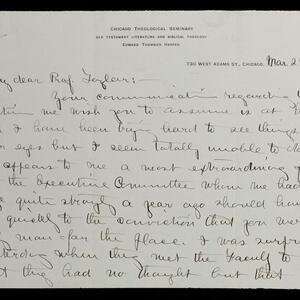 CHICAGO THEOLOGICAL SEMINARY
OLD TESTAMENT LITERATURE AND BIBLICAL THEOLOGY
EDWARD THOMSON HARPER
730 WEST ADAMS ST., CHICAGO, Mar. 2
y dear Prof. Taylor:-
Your communication regarding
me wish you to assume is at
I have been trying hard to see things
eyes but I seem totally unable to
appears to me a most extraordinary
the Executive Committee whom we had
quite strongly a year ago should have
quietly to the conviction that you were
man for the place. I was surpris
when they met the Faculty to
they had no thought but that